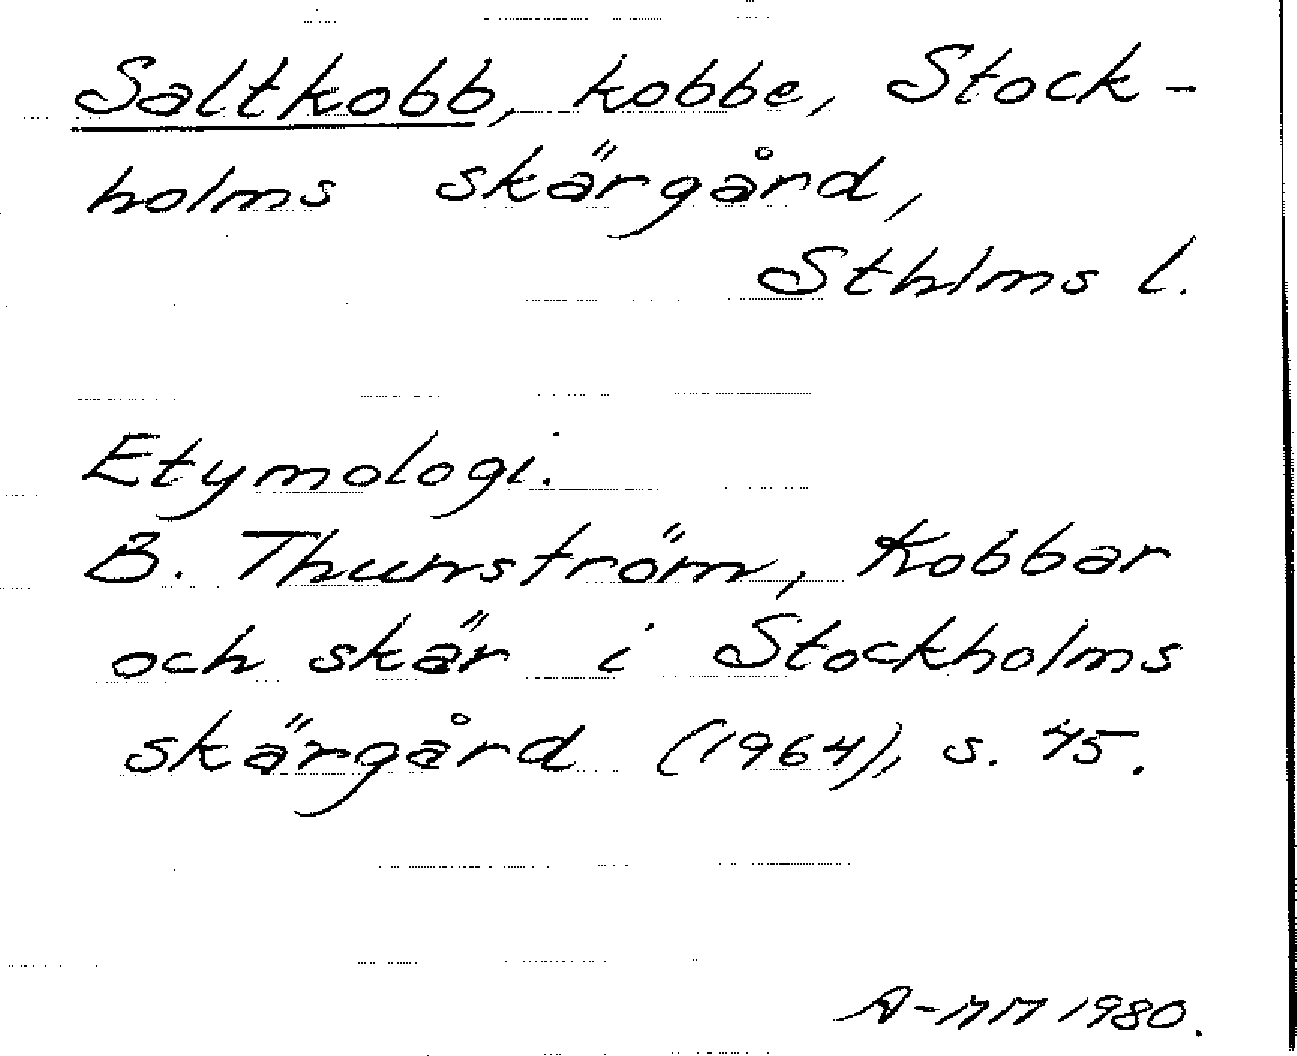 Saltkobb, kobbe, Stock-
holms skärgård,
Sthlms l.
Etymologi.
B. Thunström, Kobbar
och skär i Stockholms
skärgård (1964), s. 45.
A-MM 1980.